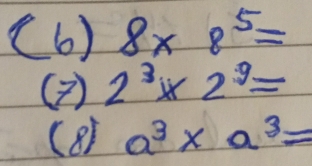 (6) 8 × 8⁵ =
(7) 2³ × 2⁹ =
(8) a³ × a³ =